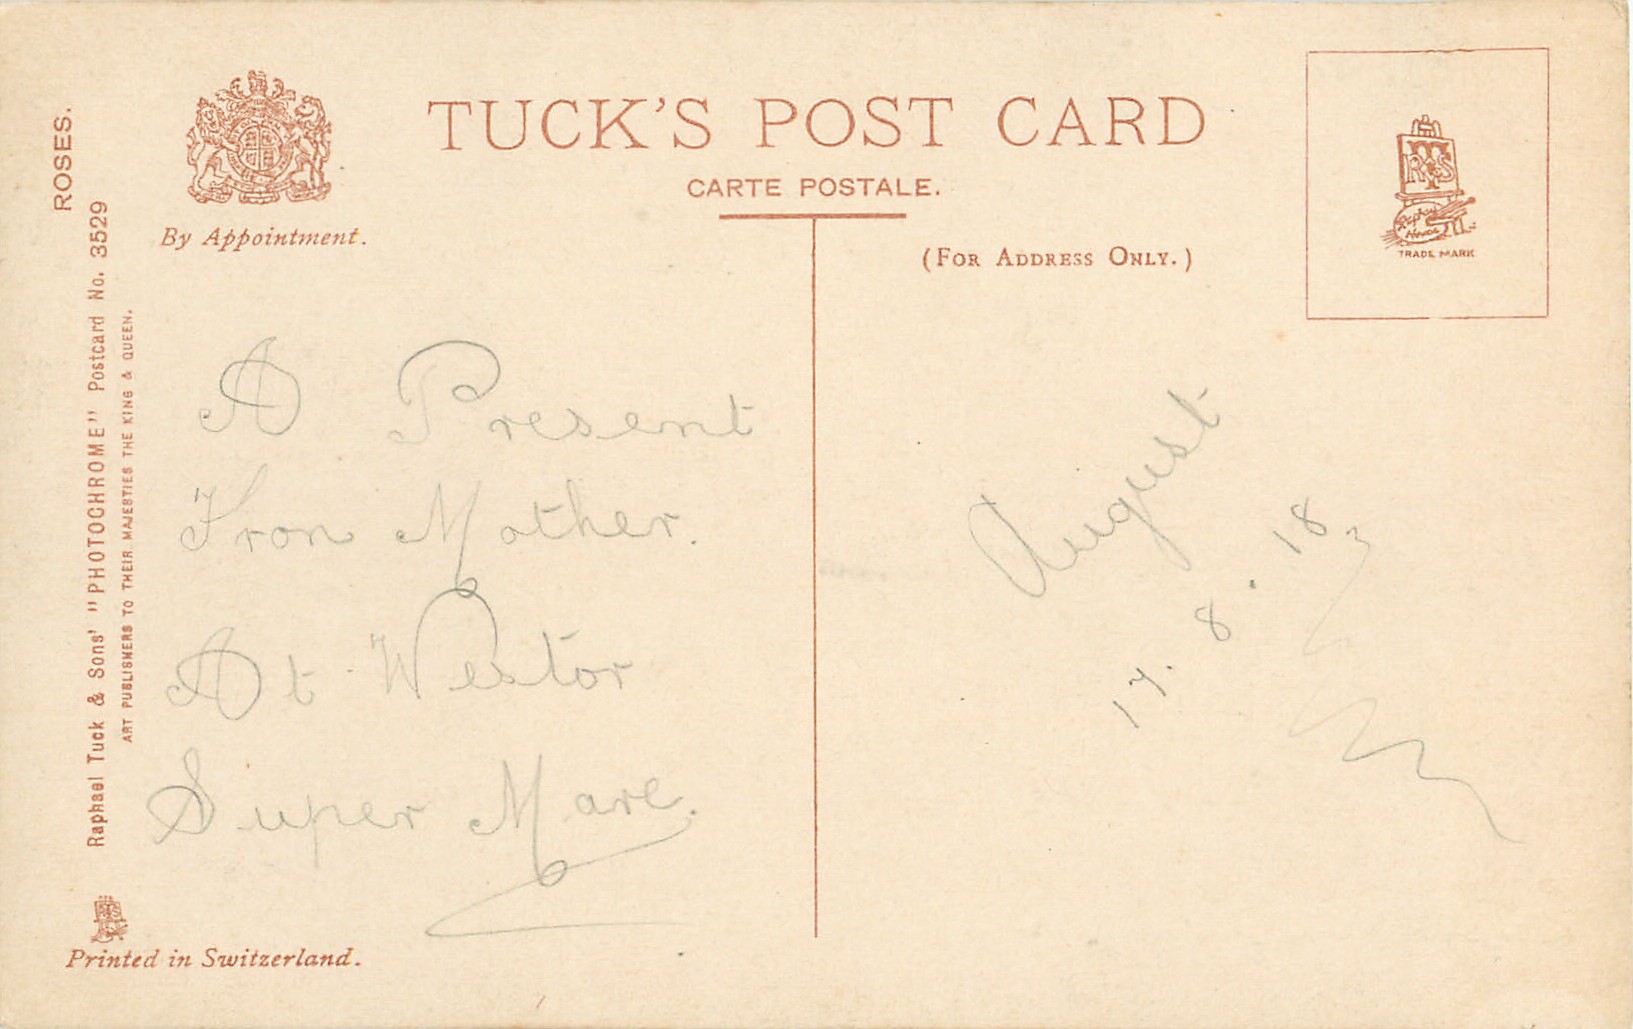 ROSES.
Raphael Tuck & Sons' "PHOTOCHROME" Postcard No. 3529
ART PUBLISHERS TO THEIR MAJESTIES THE KING & QUEEN.
By Appointment.
TUCK'S POST CARD
CARTE POSTALE.
(FOR ADDRESS ONLY.)
RTS
Raphael House
TRADE MARK
A Present
From Mother.
At Weston
Super Mare.
August
17. 8. 18
Printed in Switzerland.